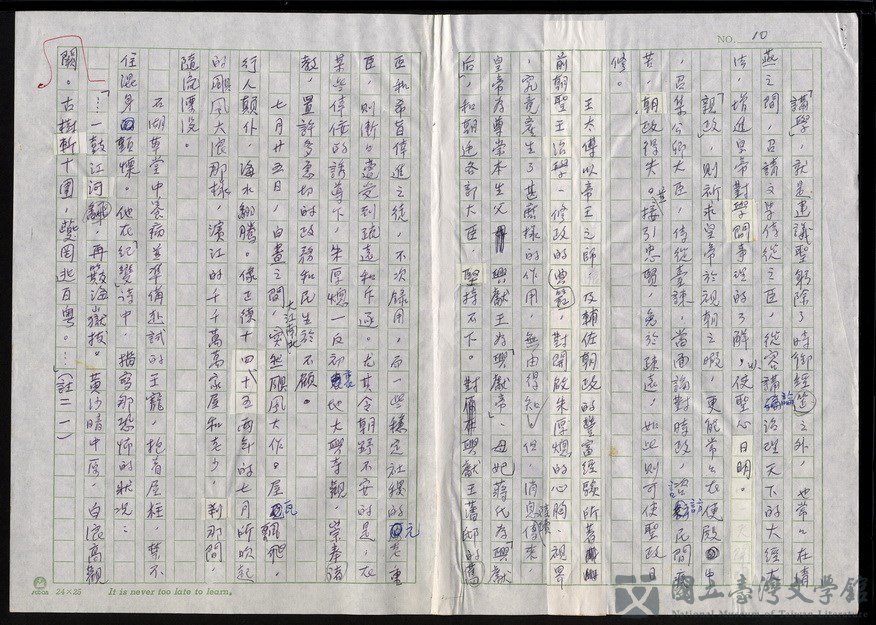 NO. 10
「講學」，就是建議聖躬除了時御經筵之外，也常常在清
燕之間，召請文學侍從之臣，從容講論治理天下的大經大
法，增進皇帝對學問事理的了解，以使聖心日明。
「親政」，則祈求皇帝於視朝之暇，更能常常在便殿中
，召集公卿大臣，侍從臺諫，當面論對時政，諮訪民間疾
苦，朝政得失。並接引忠賢，兔於疎遠，如此則可使聖政日
修。
王太傅以帝王之師，及輔佐朝政的豐富經驗所著
前朝聖王治學、修政的典範，對開啟朱厚熜的心胸、視界
，究竟產生了甚麼樣的作用，無由得知；但，消息陸續傳來，
皇帝為尊崇本生父興獻王為「興獻帝」、母妃蔣氏為「興獻
后」，和朝廷各部大臣，堅持不下。對興獻王藩邸的舊
臣和希旨倖進之徒，不次錄用，而一些穩定社稷的元老重
臣，則漸漸遭受到疏遠和斥逐。尤其令朝野不安的是，在
某些佞倖的誘導下，朱厚熜一反初衷地大興寺觀，崇奉諸
教，置許多急切的政務和民生於不顧。
七月廿五日，白晝之間，大江南北突然颶風大作。屋瓦飄飛，
行人顛仆，海水翻騰。像正德十四、十五兩年的七月所吹起
的颶風大浪那樣，濱江的千千萬萬家屋和老少，剎那間，
隨流漂沒。
石湖草堂中養病並準備赴試的王寵，抱首屋柱，禁不
住混身顫慄。他在「紀變」詩中，描寫那恐怖的狀況：
「…一鼓江河翻，再簸海嶽拔。黃沙暗中原，白浪高觀
闕。古樹斬十圍，薨罔逃百粵。…」（註二一）
24×25
It is never too late to learn.
國立臺灣文學館
National Museum of Taiwan Literature